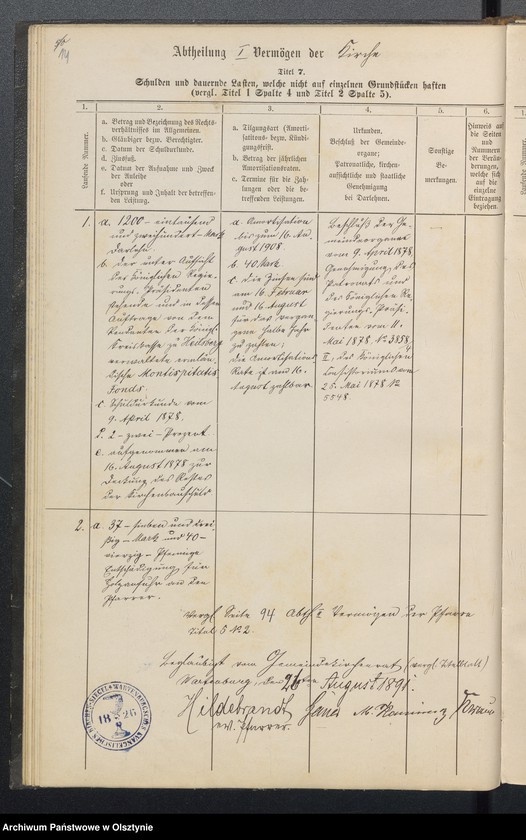 14
Abtheilung I Vermögen der Kirche
Titel 7.
Schulden und dauernde Lasten, welche nicht auf einzelnen Grundstücken haften
(vergl. Titel 1 Spalte 4 und Titel 2 Spalte 5).
1.
Laufende Nummer.
2.
a. Betrag und Bezeichnung des Rechts-
verhältnisses im Allgemeinen.
b. Gläubiger bezw. Berechtigter.
c. Datum der Schuldurkunde.
d. Zinsfuß.
e. Datum der Aufnahme und Zweck
der Anleihe
oder
f. Ursprung und Inhalt der betreffen-
den Leistung.
3.
a. Tilgungsart (Amorti-
sations- bezw. Kündi-
gungsfrist.
b. Betrag der jährlichen
Amortisationsraten.
c. Termine für die Zah-
lungen oder die be-
treffenden Leistungen.
4.
Urkunden.
Beschluß der Gemeinde-
organe;
Patronatliche, kirchen-
aufsichtliche und staatliche
Genehmigung
bei Darlehnen.
5.
Sonstige
Be-
merkungen.
6.
Hinweis auf
die Seiten
und
Nummern
der Verän-
derungen,
welche sich
auf die
einzelne
Eintragung
beziehen
1.
a. 1200 – eintausend
und zweihundert – Mark
Darlehn
b. der unter Aufsicht
des Königlichen Regie-
rungs-Präsidenten
stehende und in dessen
Auftrage von dem
Rendanten der Königl.
Kreiskasse zu Heilsberg
verwaltete ermlän-
dische Montispietatis
Fonds.
c. Schuldurkunde vom
9. April 1878.
d. 2 – zwei – Prozent
e. aufgenommen am
16. August 1878 zur
Deckung des Restes
der Kirchenbauschuld
a. Amortisation
bis zum 16. Au-
gust 1908
b. 40 Mark
c. die Zinsen sind
am 16. Februar
und 16. August
für das vergan-
gene halbe Jahr
zu zahlen;
die Amortisations
Rate ist am 16.
August zahlbar.
Beschluß der Ge-
meindeorgane
vom 9. April 1878,
Genehmigung des
Patronats und
des Königlichen Re-
gierungs-Präsi-
denten vom 11.
Mai 1878. No 3858
II; des Königlichen
Consistoriums vom
25. Mai 1878 No
5548.
2.
a. 37 – sieben und drei-
ßig – Mark und 40 –
vierzig – Pfennige
Entschädigung für
Holzanfuhr an den
Pfarrer.
Vergl. Seite 94 Abth. II Vermögen der Pfarre
Titel 5 No 2.
Beglaubigt vom Gemeindekirchenrat (vergl. Titelblatt)
Wartenburg, den 26ten August 1891.
Hildebrandt
ev. Pfarrer.
18 26
Archiwum Państwowe w Olsztynie